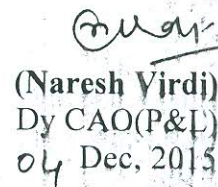 (Naresh Virdi)
Dy CAO(P&L)
04 Dec, 2015